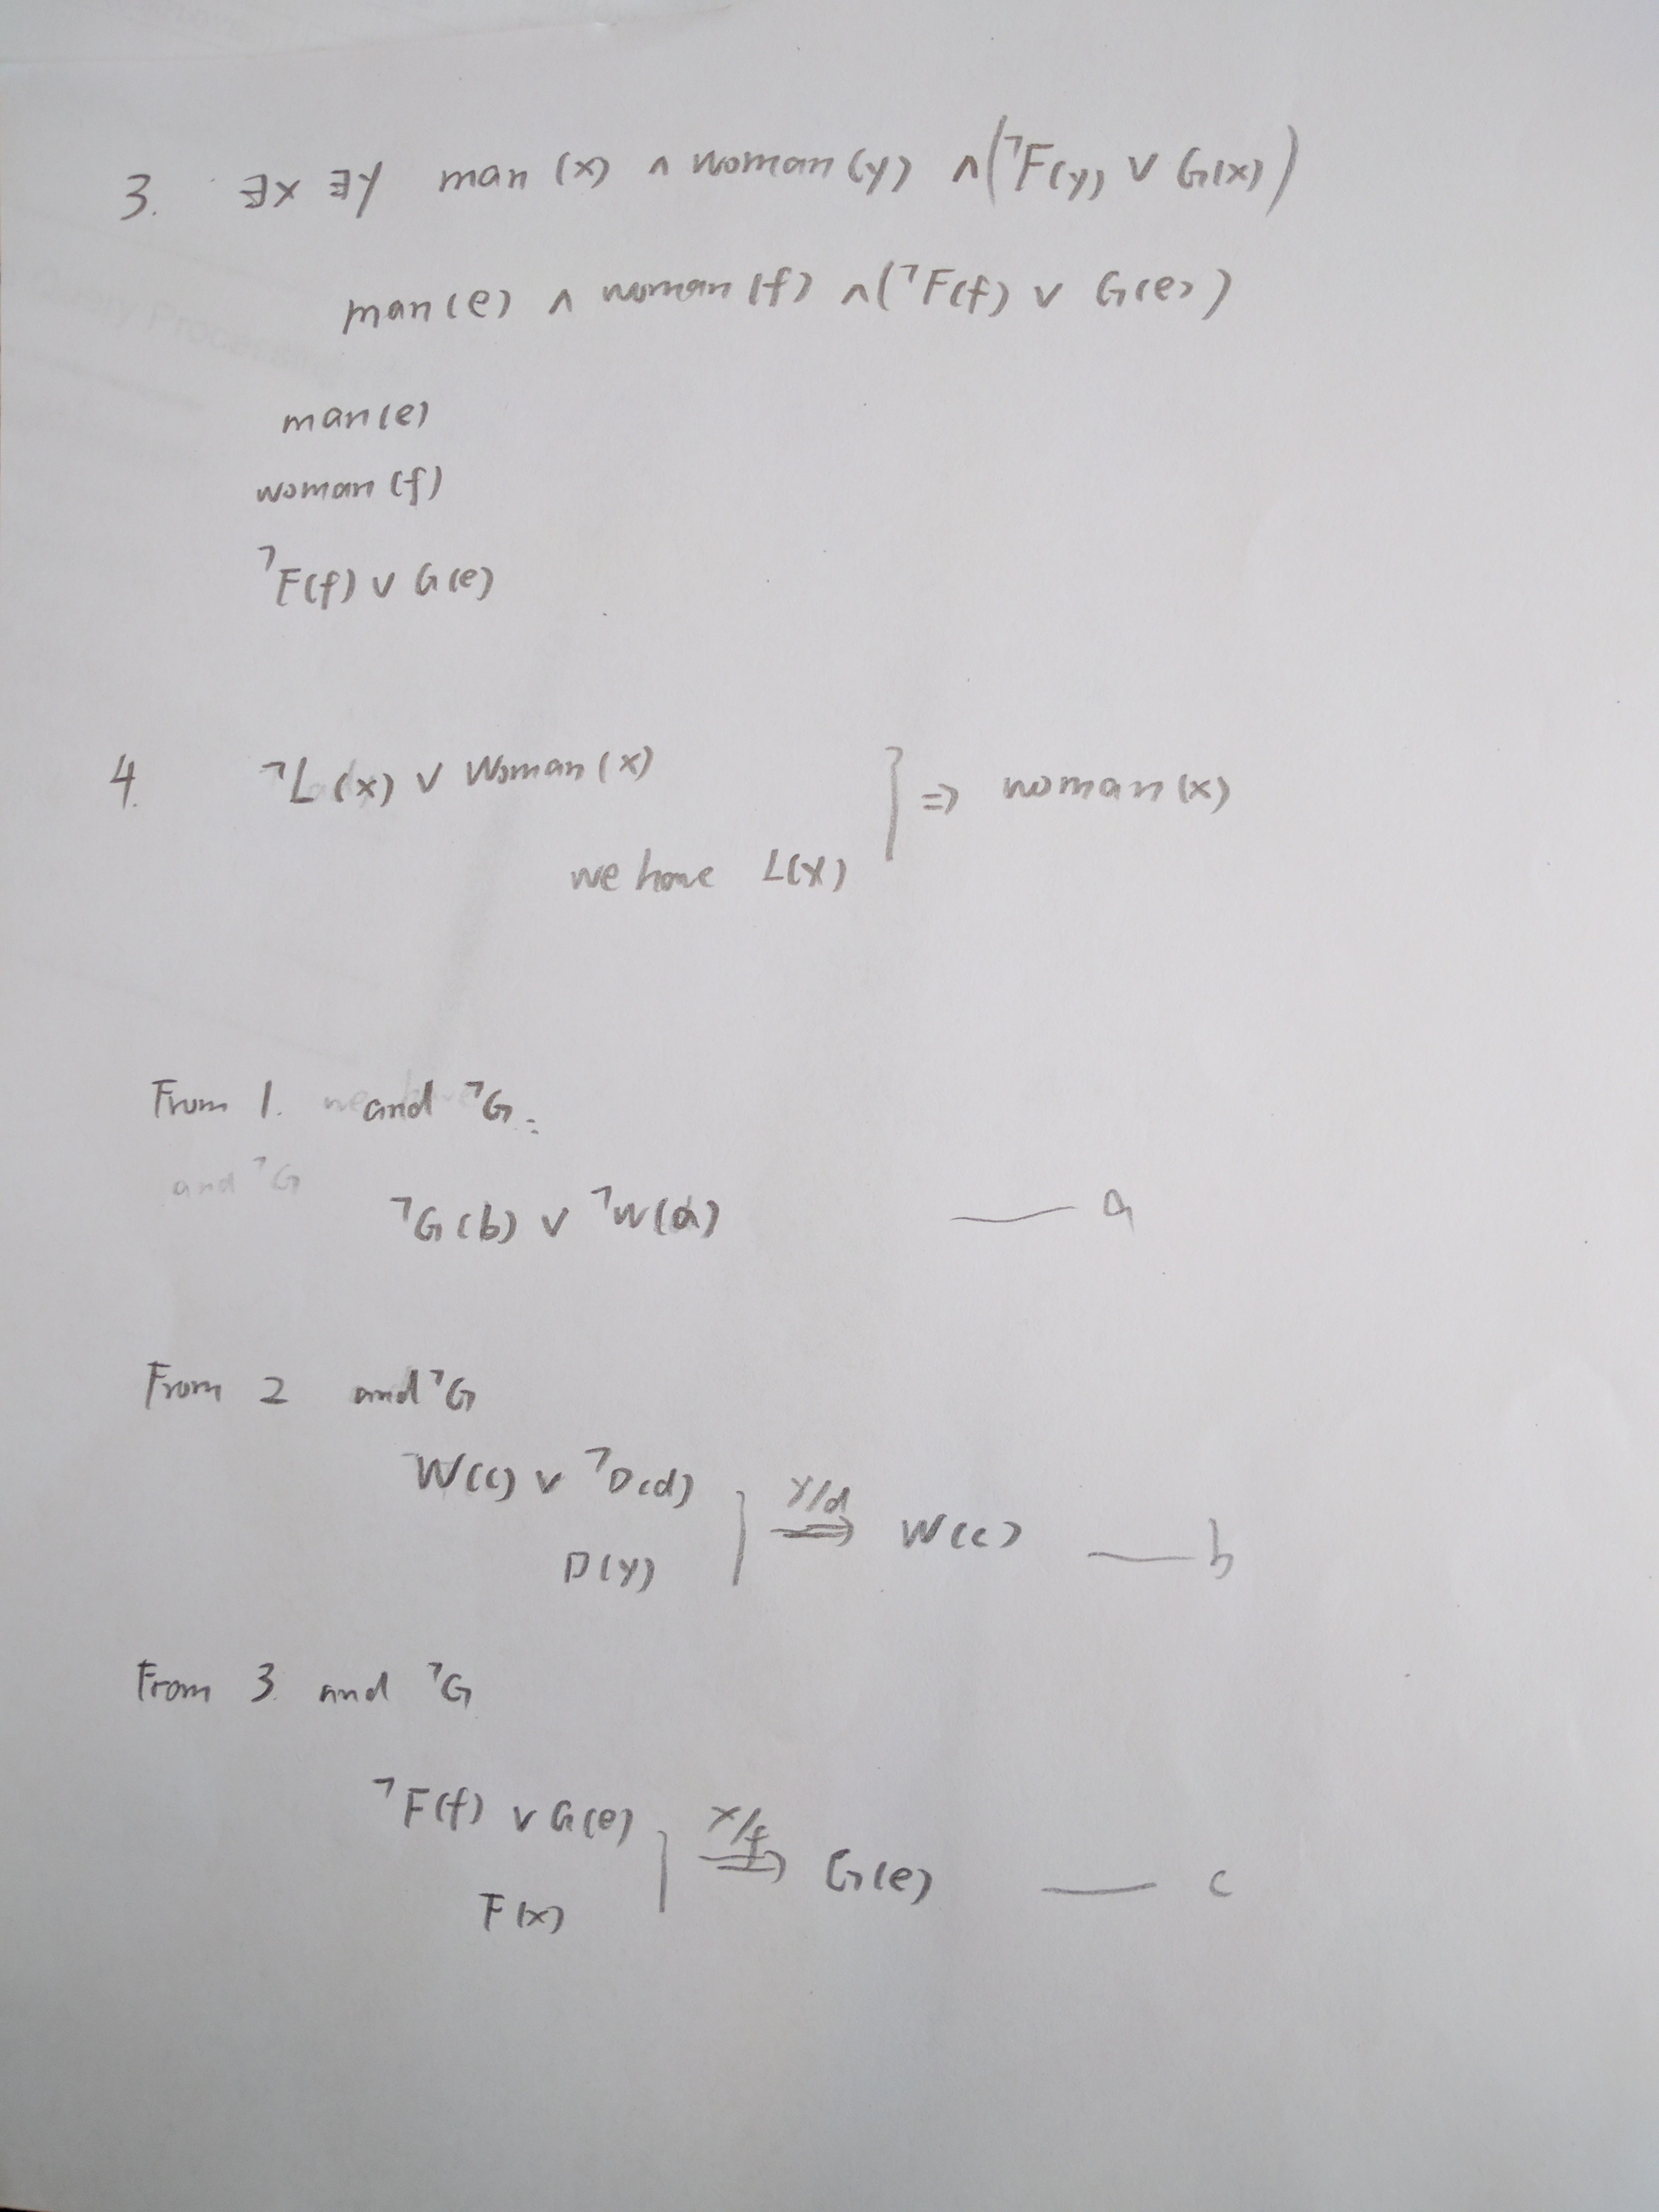 3. ∃x ∃y man(x) ∧ woman(y) ∧ (¬F(y) ∨ G(x))
man(e) ∧ woman(f) ∧ (¬F(f) ∨ G(e))
man(e)
woman(f)
¬F(f) ∨ G(e)
4. ¬L(x) ∨ Woman(x)
we have L(x)
⇒ woman(x)
From 1. and ¬G:
and ¬G
¬G(b) ∨ ¬W(a) — a
From 2 and ¬G
W(c) ∨ ¬D(d)
D(y)
y/d ⇒ W(c) — b
From 3. and ¬G
¬F(f) ∨ G(e)
F(x)
x/f ⇒ G(e) — c